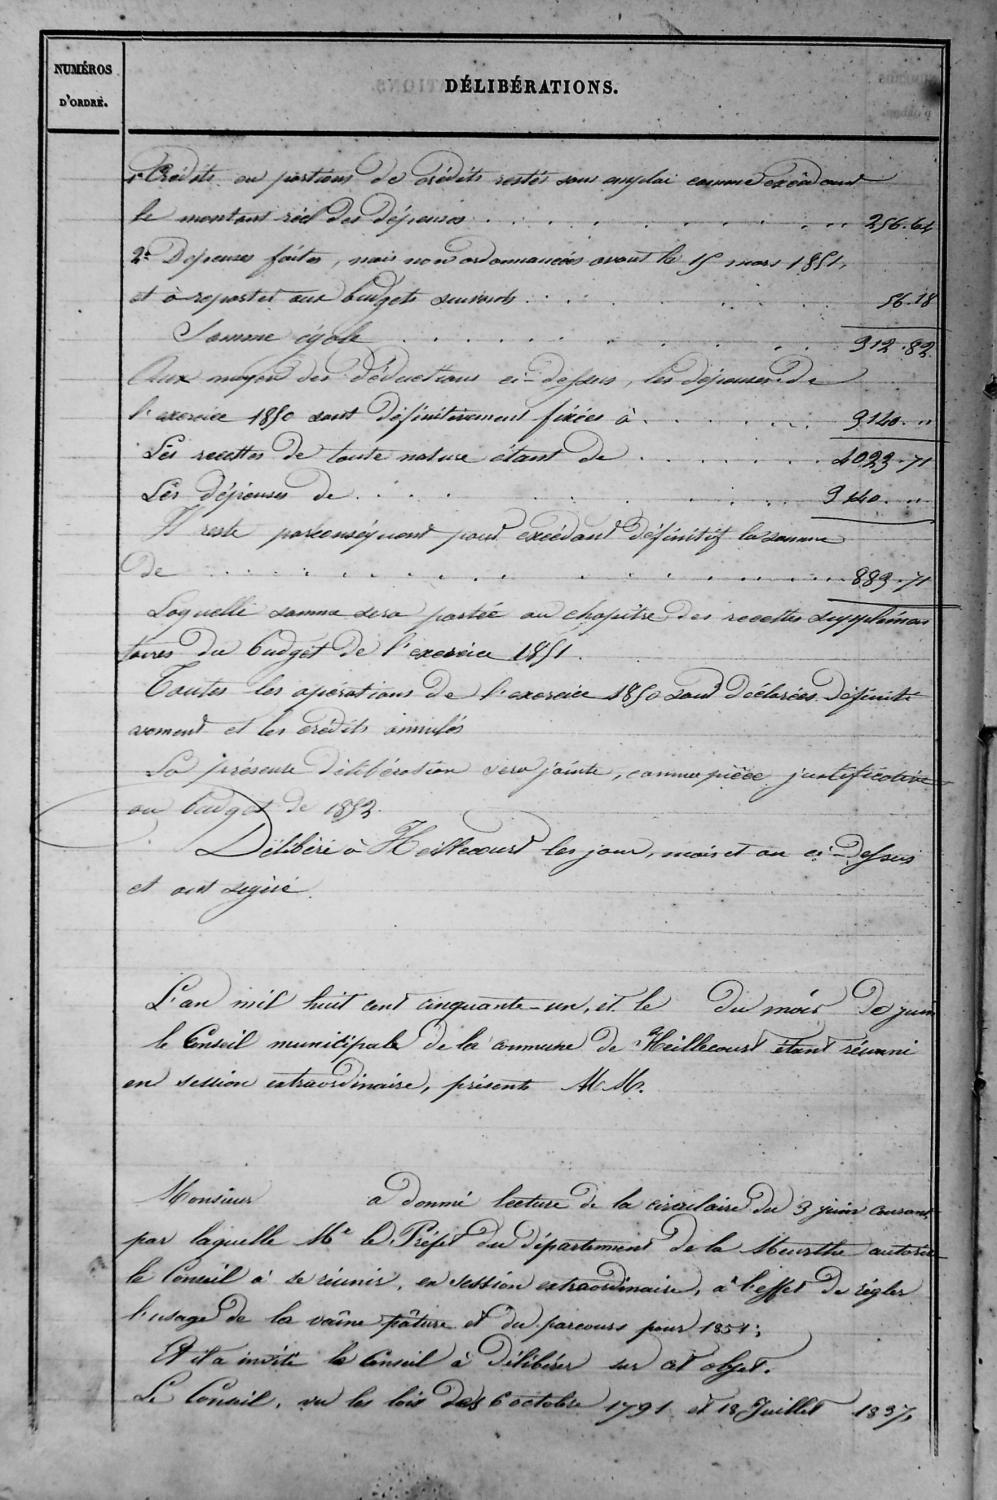 NUMÉROS
D'ORDRE.
DÉLIBÉRATIONS.
1° Crédits ou portions de crédits restés sans emploi comme excédant
le montant réel des dépenses . . . . . . . . . . 256.64
2° Dépenses faites, mais non ordonnancées avant le 15 mars 1851,
et à reporter aux budgets suivants . . . . . . . . 56.18
Somme égale . . . . . . . . . . 312.82
Aux moyen des déductions ci-dessus, les dépenses de
l'exercice 1850 sont définitivement fixées à . . . . . . 3140. "
Les recettes de toute nature étant de . . . . . . . 4023.71
Les dépenses de . . . . . . . . . . 3140. "
Il reste parconséquent pour excédant définitif la somme
de . . . . . . . . . . . . . . . 883.71
Laquelle somme sera portée au chapitre des recettes supplémen
taires du budget de l'exercice 1851.
Toutes les opérations de l'exercice 1850 sont déclarées définiti
vement et les crédits annulés
La présente délibération sera jointe, comme pièce justificative
au budget de 1852.
Délibéré à Heillecourt les jour, mois et an ci-dessus
et ont signé.
L'an mil huit cent cinquante-un, et le du mois de juin
le Conseil municipale de la commune de Heillecourt étant réunni
en session extraordinaire, présents MM.
Monsieur a donné lecture de la circulaire du 3 juin courant,
par laquelle Mr le Préfet du département de la Meurthe autorise
le Conseil à se réunir, en session extraordinaire, à l'effet de régler
l'usage de la vaine pâture et du parcours pour 1851;
Et il a invité le Conseil à délibérer sur cet objet.
Le Conseil, vu les lois des 6 octobre 1791 et 18 Juillet 1837,